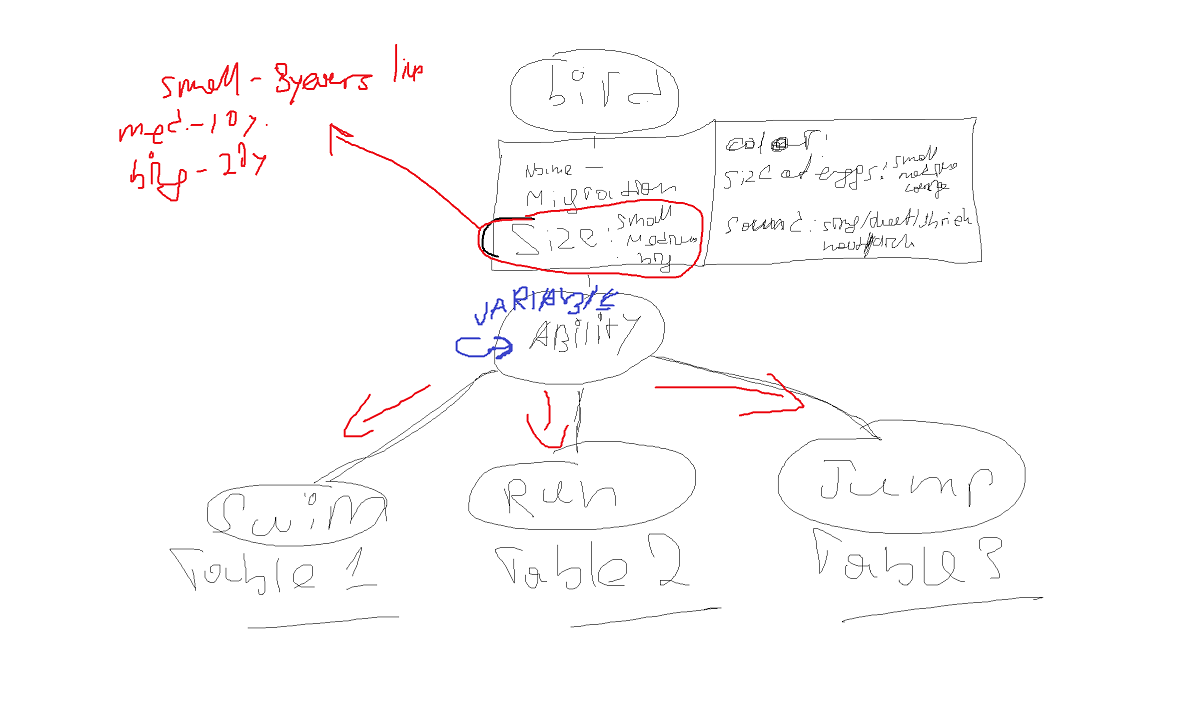 bird
small - 8years
med. - 10y.
big - 20y
Name -
Migration
Size: small
Medium
big
color:
size of eggs: small
medium
large
sound: song/duet/shriek
VARIABLE
ABility
Swim
Run
Jump
Table 1
Table 2
Table 3